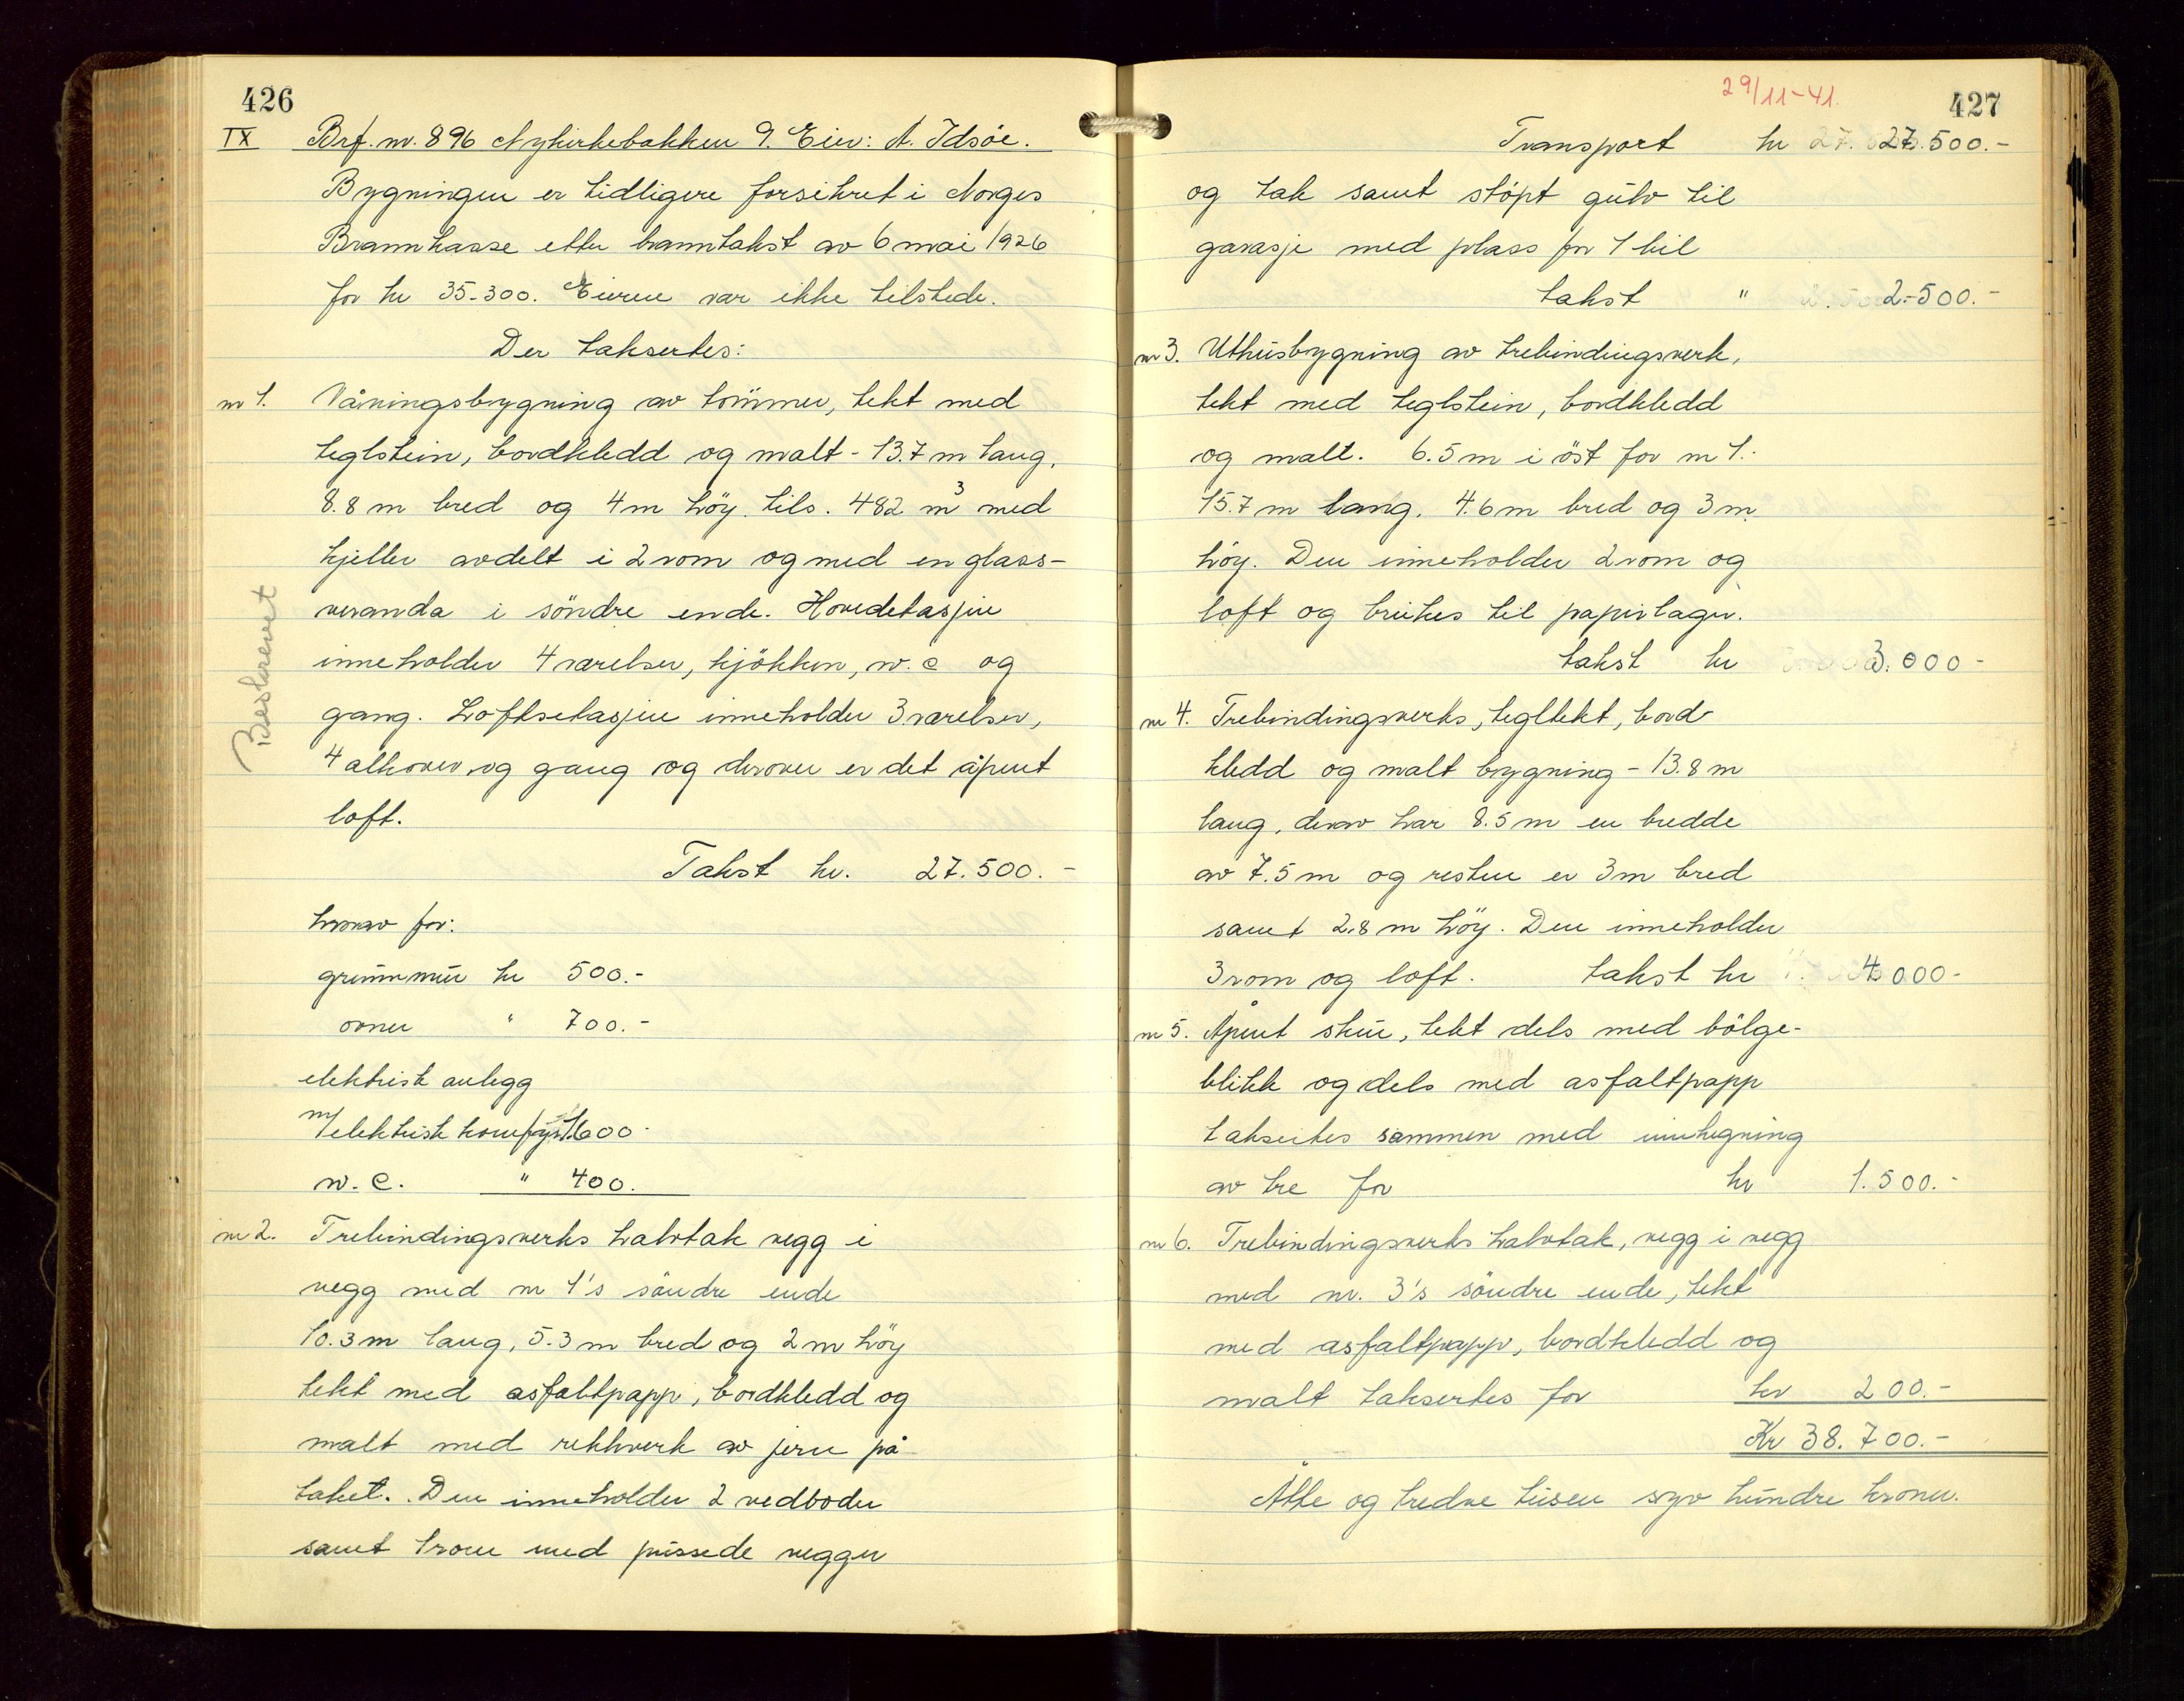 426
IX Brf. nr. 896 Nykirkebakken 9. Eier: A. Idsöe.
Bygningen er tidligere forsikret i Norges
Brannkasse etter branntakst av 6 mai 1926
for kr 35.300. Eieren var ikke tilstede.
Der taksertes:
nr 1. Våningsbygning av tömmer, tekt med
teglstein, bordkledd og malt - 13.7 m lang,
8.8 m bred og 4 m höy. tils. 482 m³ med
kjeller avdelt i 2 rom og med en glass-
veranda i söndre ende. Hovedetasjen
inneholder 4 værelser, kjökken, w.c og
gang. Loftsetasjen inneholder 3 værelser,
4 alkover, og gang og derover er det åpent
loft.
Takst kr. 27.500.-
hvorav for:
grunnmur kr 500.-
ovner " 700.-
elektrisk anlegg
m/ elektrisk komfyr 1.600-
w.c. " 400.
Beskrevet
nr 2. Trebindingsverks halvtak vegg i
vegg med nr 1's söndre ende
10.3 m lang, 5.3 m bred og 2 m höy
tekt med asfaltpapp, bordkledd og
malt med rekkverk av jern på
taket. Den inneholder 2 vedboder
samt 1 rom med pussede vegger
29/11-41.
427
Transport kr 27.500.-
og tak samt stöpt gulv til
garasje med plass for 1 bil
takst " 2.500.-
nr 3. Uthusbygning av trebindingsverk,
tekt med teglstein, bordkledd
og malt. 6.5 m i öst for nr 1.
15.7 m lang, 4.6 m bred og 3 m
höy. Den inneholder 2 rom og
loft og brukes til papirlager.
takst kr 3.000-
nr 4. Trebindingsverks, tegltekt, bord-
kledd og malt bygning - 13.8 m
lang, derav har 8.5 m en bredde
av 7.5 m og resten er 3 m bred
samt 2.8 m höy. Den inneholder
3 rom og loft. takst kr 4.000-
nr 5. Åpent skur, tekt dels med bölge-
blikk og dels med asfaltpapp
taksertes sammen med innhegning
av tre for kr 1.500.-
nr 6. Trebindingsverks halvtak, vegg i vegg
med nr. 3's söndre ende, tekt
med asfaltpapp, bordkledd og
malt taksertes for kr 200.-
Kr 38.700.-
Åtte og tredve tusen syv hundre kroner.